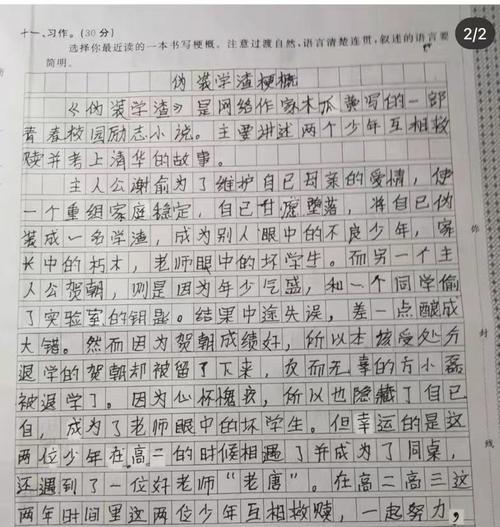 2/2
十一、习作。(30分)
选择你最近读的一本书写梗概。注意过渡自然,语言清楚连贯,叙述的语言要
简明。
伪装学渣梗概
《伪装学渣》是网络作家木瓜黄写的一部
青春校园励志小说。主要讲述两个少年互相救
赎并考上清华的故事。
主人公谢俞为了维护自己母亲的爱情,使
一个重组家庭稳定,自己甘愿堕落,将自己伪
装成一名学渣,成为别人眼中的不良少年,家
长中的朽木,老师眼中的坏学生。而另一个主
人公贺朝,则是因为年少气盛,和一个同学偷
了实验室的钥匙。结果中途失误,差一点酿成
大错。然而因为贺朝成绩好,所以本该受处分
退学的贺朝却被留了下来,反而无辜的方小磊
被退学了。因为心怀愧疚,所以也隐藏了自己
自,成为了老师眼中的坏学生。但幸运的是这
两位少年在高二的时候相遇了并成为了同桌,
还遇到了一位好老师“老唐”。在高二高三这
两年时间里这两位少年互相救赎,一起努力,
你
封
线